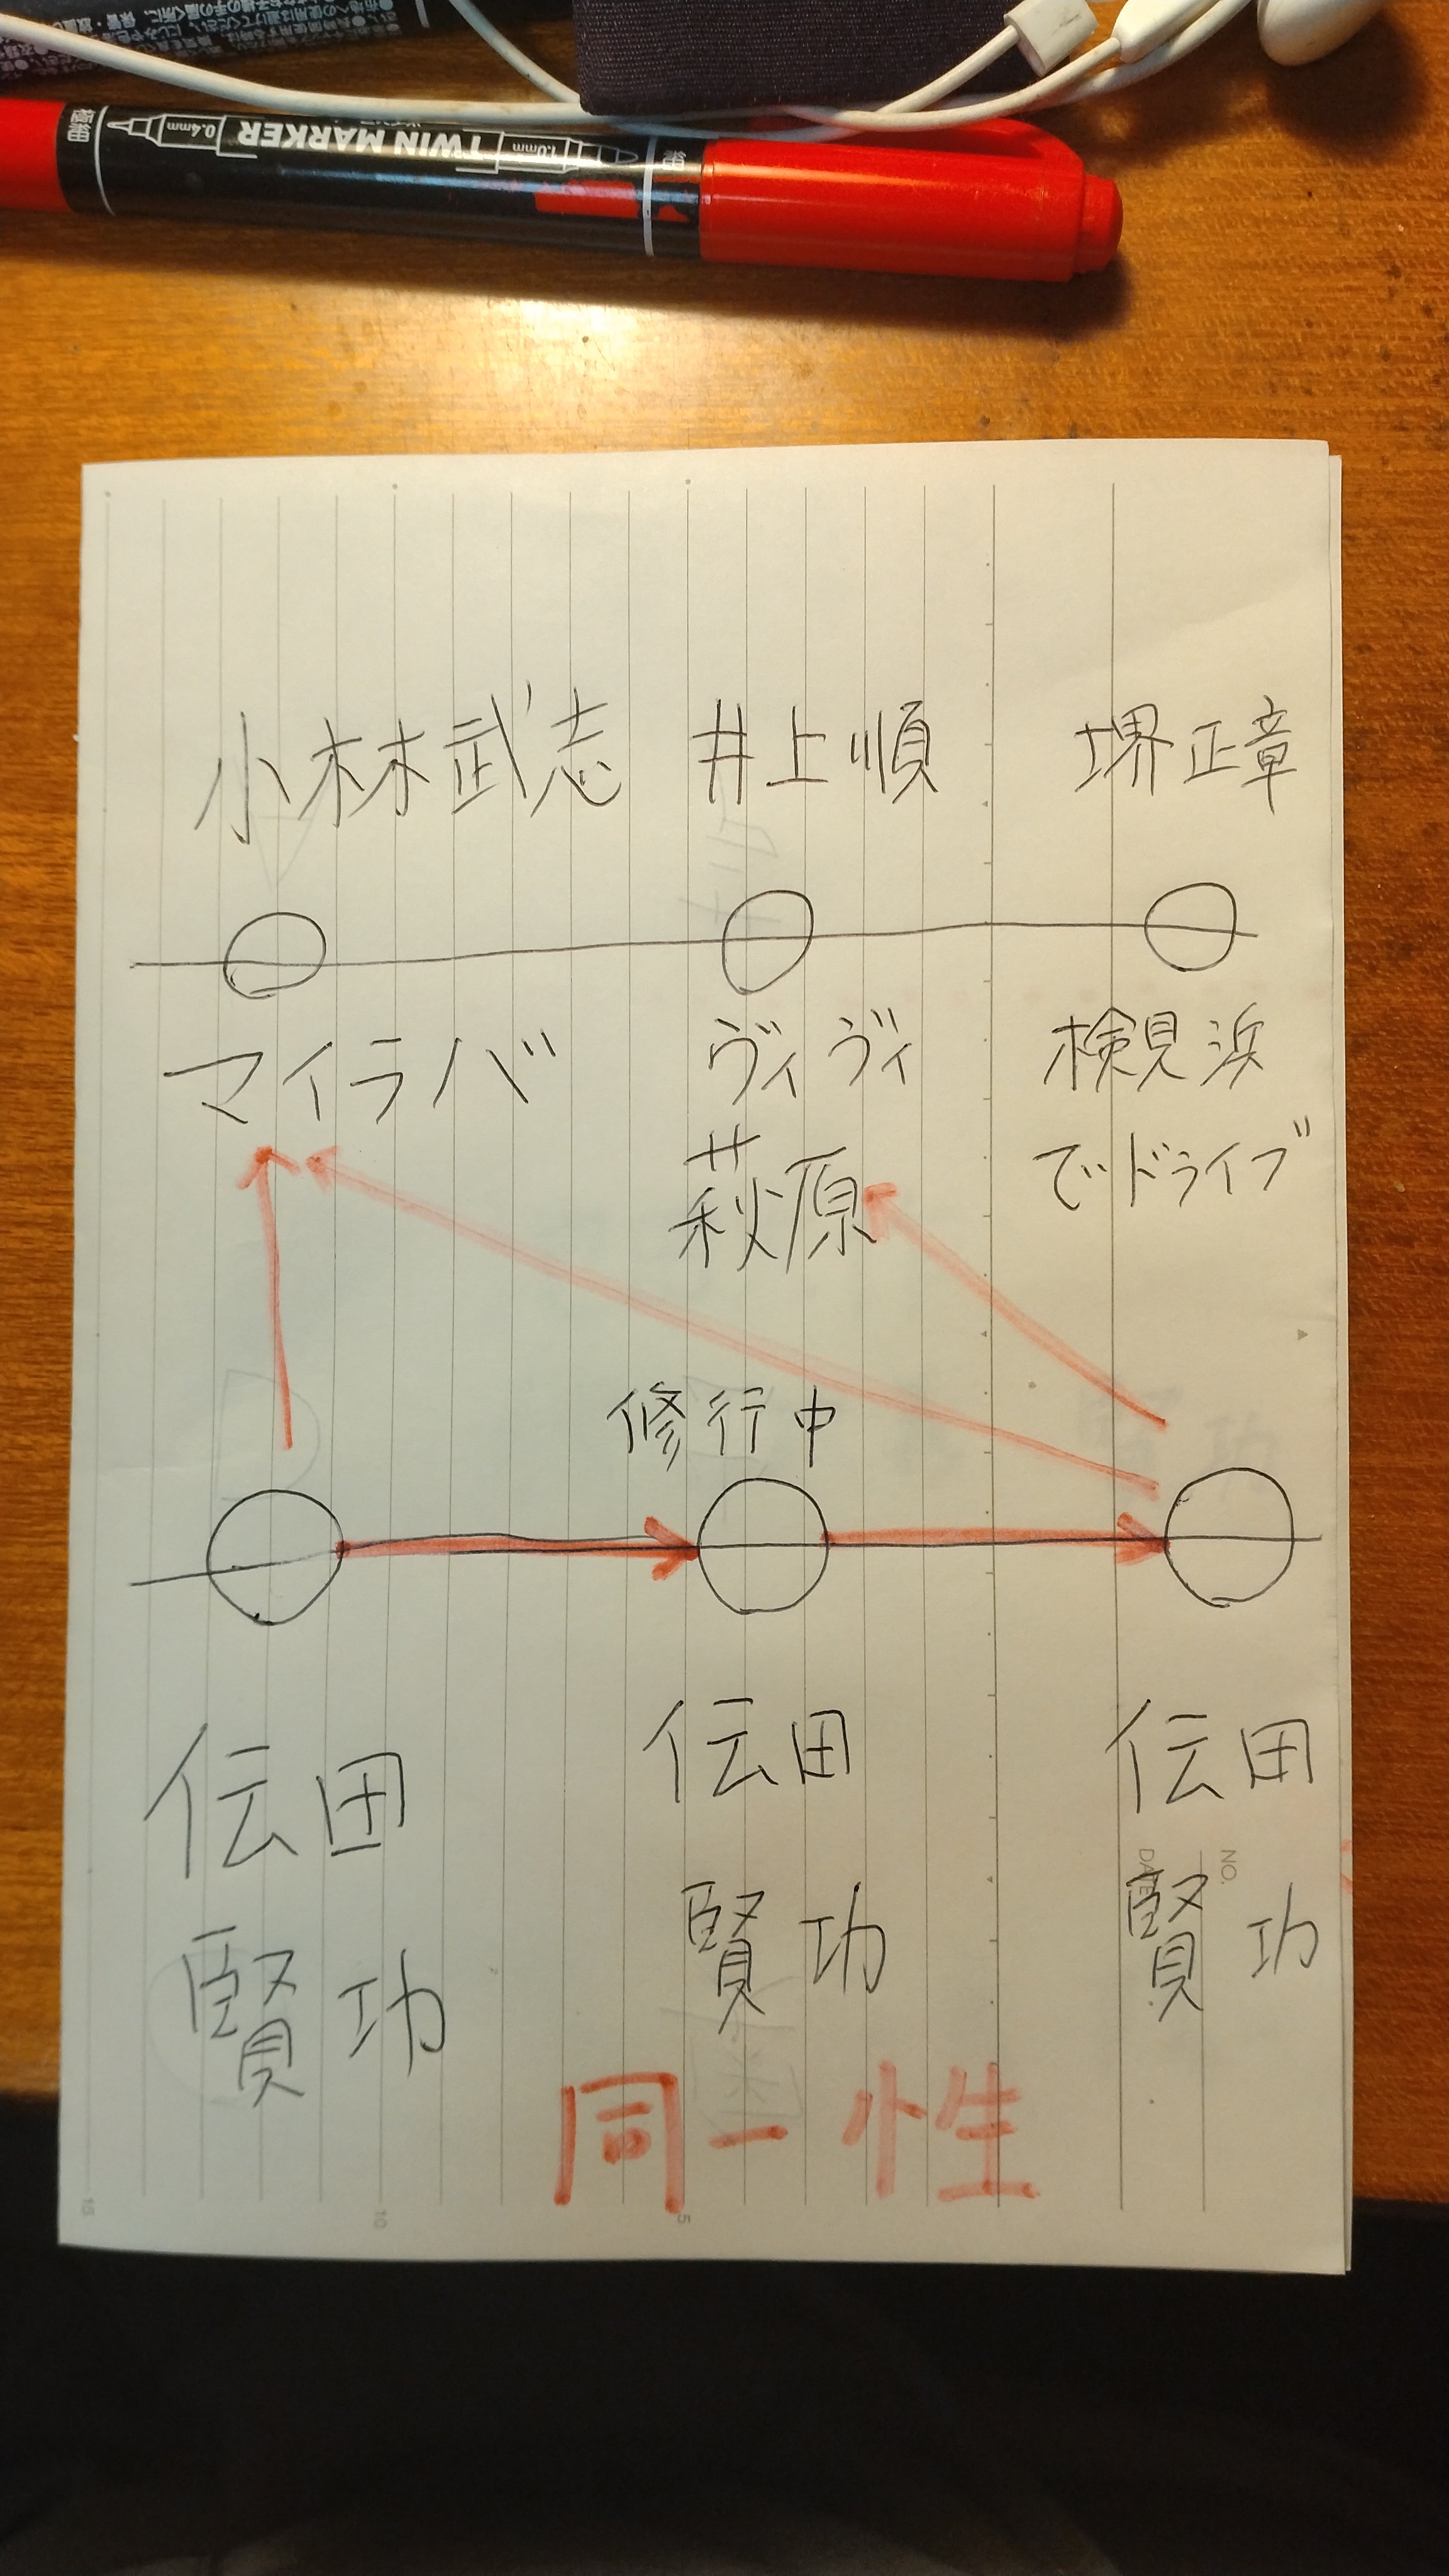 極細
0.4mm
TWIN MARKER
1.0mm
細
小林武志
井上順
堺正章
マイラバ
ヴィヴィ
萩原
検見浜
でドライブ
修行中
伝田
賢功
伝田
賢功
伝田
賢功
NO.
DATE
同一性
15
10
5